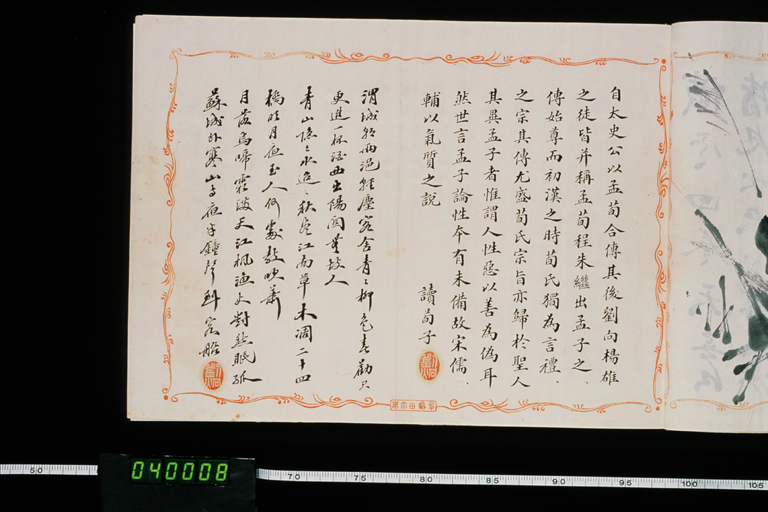 自太史公以孟荀合傳其後劉向楊雄
之徒皆并稱孟荀程朱繼出孟子之
傳始尊而初漢之時荀氏獨為言禮
之宗其傳尤盛荀氏宗旨亦歸於聖人
其異孟子者惟謂人性惡以善為偽耳
然世言孟子論性本有未備故宋儒
輔以氣質之說
讀荀子
渭城朝雨浥輕塵客舍青〻柳色春勸君
更進一杯酒西出陽関無故人
青山隱〻水迢〻秋盡江南草木凋二十四
橋明月夜玉人何處教吹簫
月落烏啼霜滿天江楓漁火對愁眠孤
蘇城外寒山寺夜半鐘聲到客船
040008
50
70
75
80
85
90
95
100
105